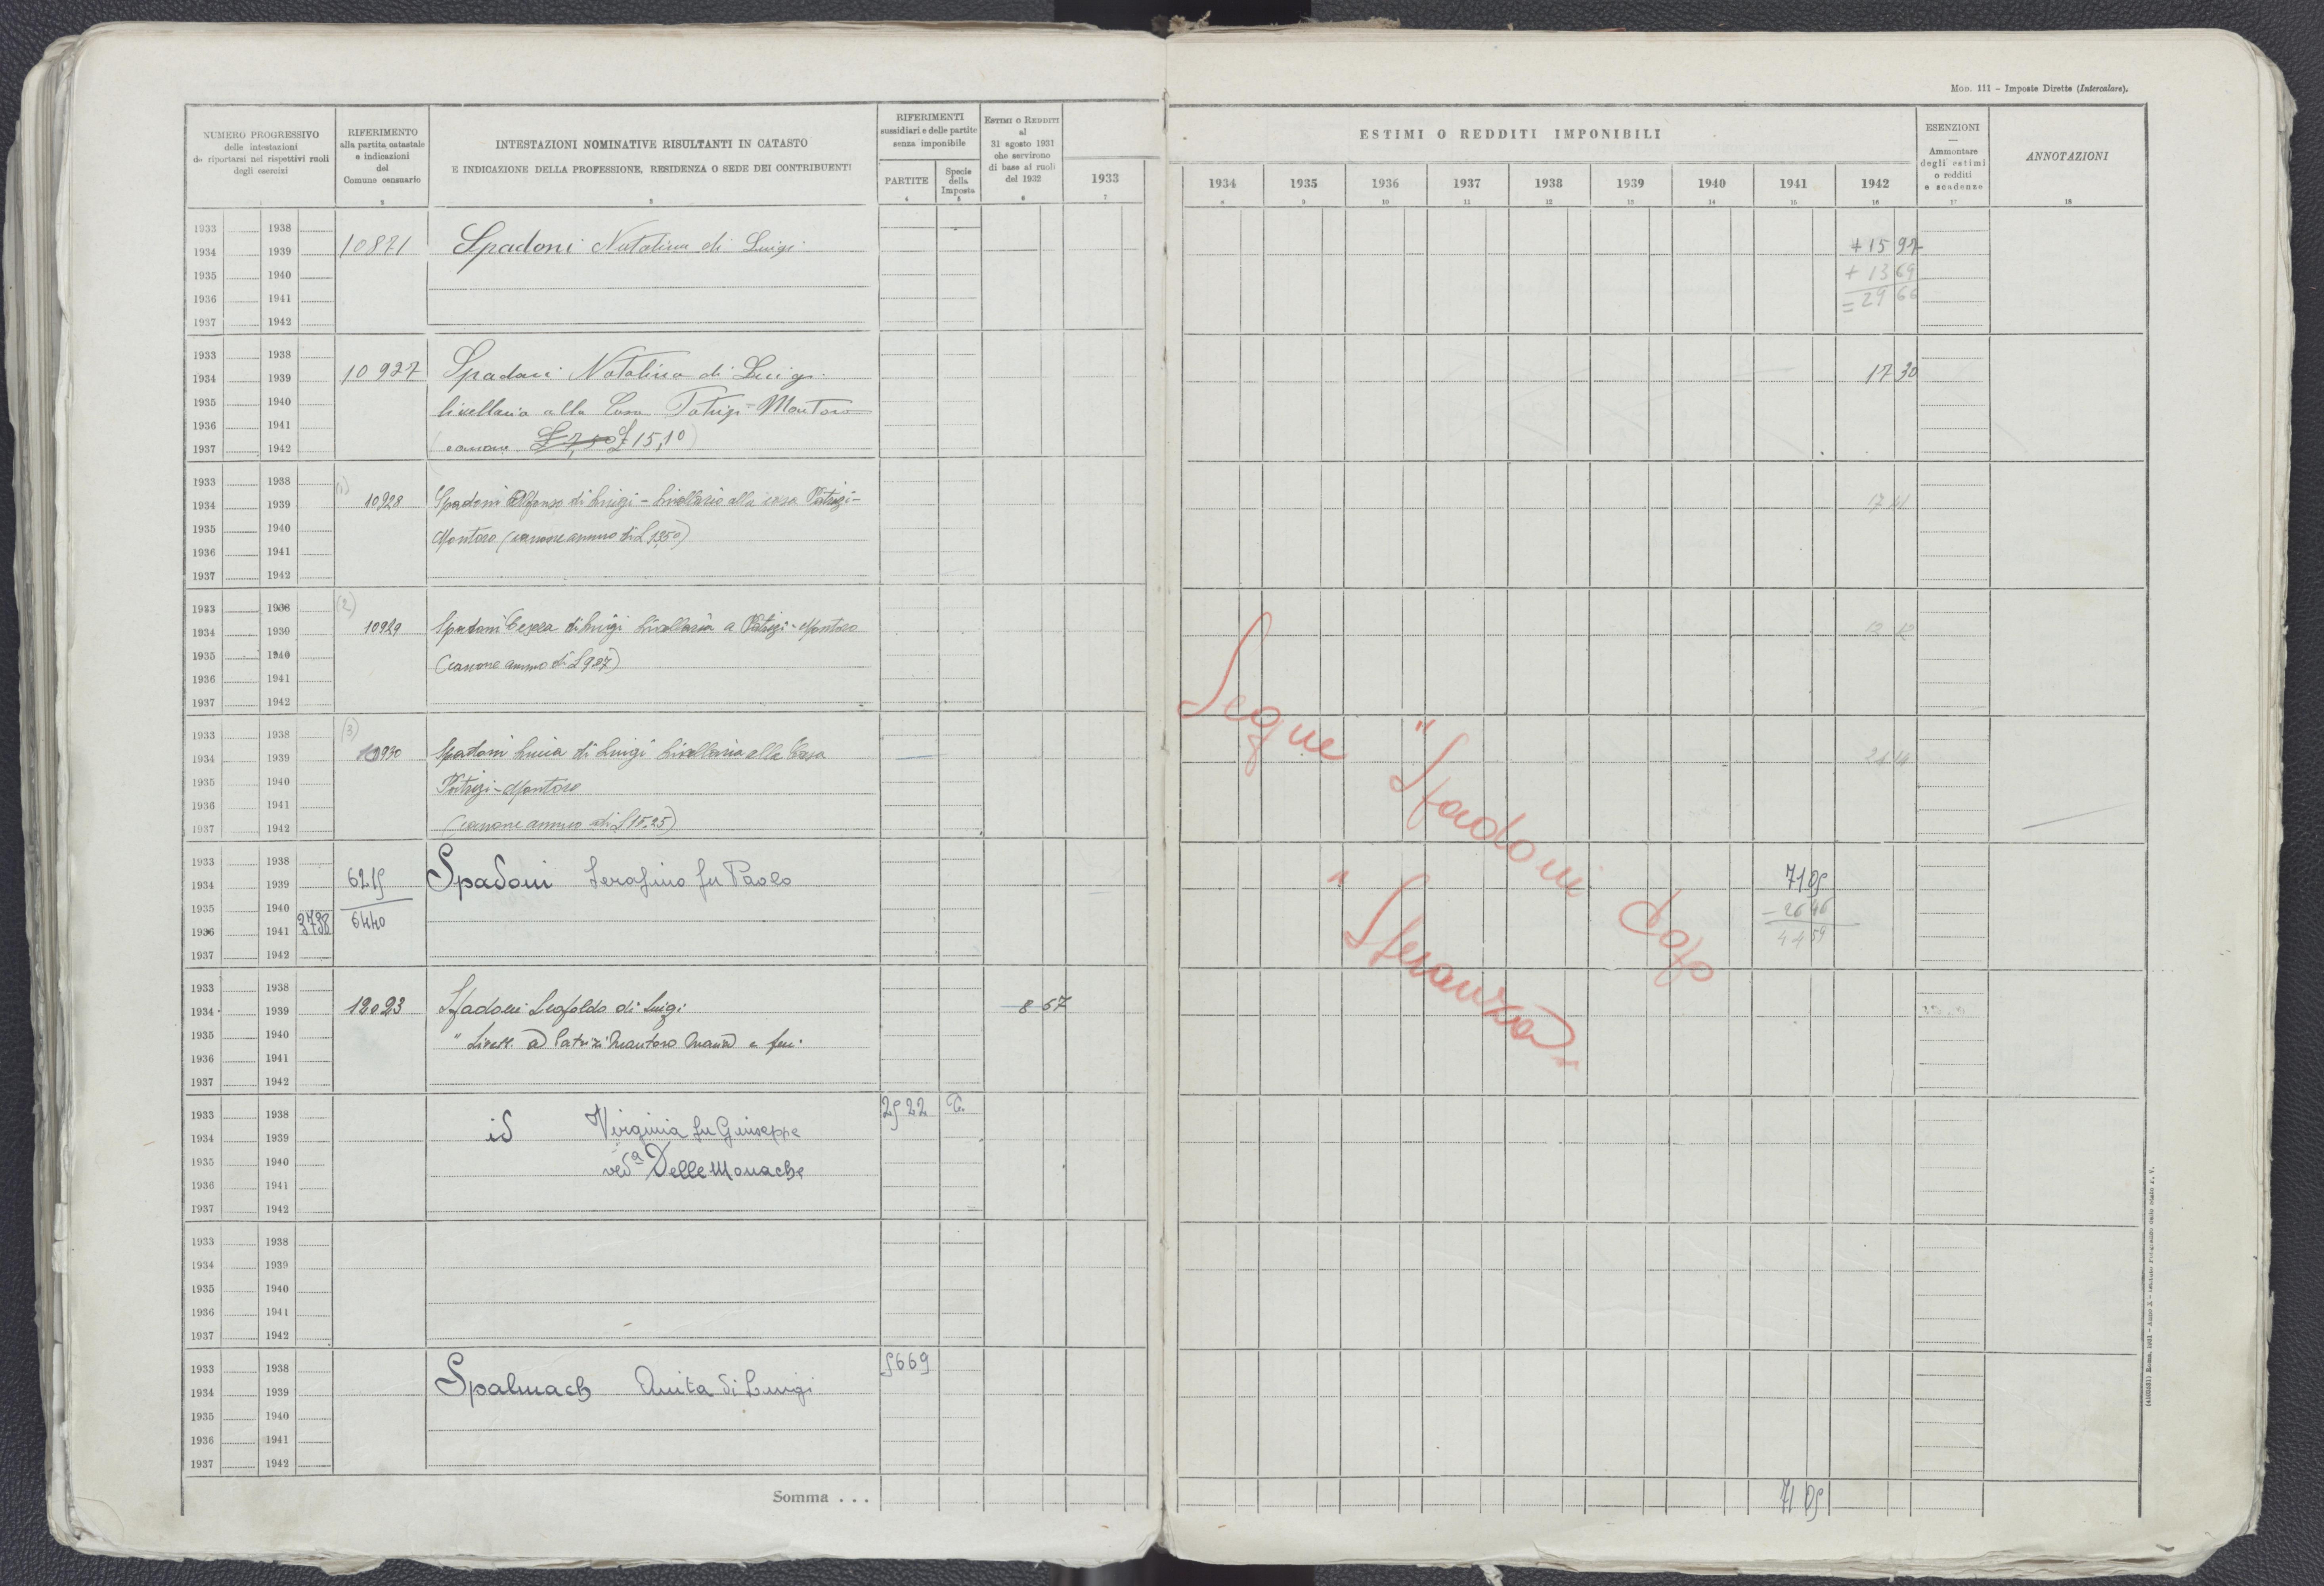 Mod. 111 - Imposte Dirette (Intercalare).
NUMERO PROGRESSIVO
delle intestazioni
da riportarsi nei rispettivi ruoli
degli esercizi
RIFERIMENTO
alla partita catastale
e indicazioni
del
Comune censuario
2
INTESTAZIONI NOMINATIVE RISULTANTI IN CATASTO
E INDICAZIONE DELLA PROFESSIONE, RESIDENZA O SEDE DEI CONTRIBUENTI
3
RIFERIMENTI
sussidiari e delle partite
senza imponibile
PARTITE
4
Specie
della
Imposta
5
ESTIMI O REDDITI
al
31 agosto 1931
che servirono
di base ai ruoli
del 1932
6
1933
7
ESTIMI O REDDITI IMPONIBILI
1934 1935 1936 1937 1938 1939 1940 1941 1942
8 9 10 11 12 13 14 15 16
ESENZIONI
Ammontare
degli estimi
o redditi
e scadenze
17
ANNOTAZIONI
18
1933 1938
1934 1939 10871 Spadoni Natalina di Luigi + 15 97
1935 1940 + 13 69
1936 1941 = 29 66
1937 1942
1933 1938
1934 1939 10927 Spadoni Natalina di Luigi 17 30
1935 1940 livellaria alla Casa Patrizi-Montoro
1936 1941
1937 1942 (canone £ 7,50 £ 15,10)
1933 1938 (1)
1934 1939 10928 Spadoni Alfonso di Luigi - livellario alla casa Patrizi- 17 41
1935 1940 Montoro (canone annuo di L 13,50)
1936 1941
1937 1942
1933 1938 (2)
1934 1939 10929 Spadoni Cesira di Luigi livellaria a Patrizi-Montoro 12 12
1935 1940 (canone annuo di L 9,27)
1936 1941
1937 1942
1933 1938 (3)
1934 1939 10930 Spadoni Lucia di Luigi livellaria alla Casa 21 14
1935 1940 Patrizi-Montoro
1936 1941
1937 1942 (canone annuo di L 15,25)
Segue "Spadoni dopo
" Speranza
1933 1938
1934 1939 6215 Spadoni Serafino fu Paolo 71 05
1935 1940 - 26 46
1936 1941 3738 6440 44 59
1937 1942
1933 1938
1934 1939 12023 Spadoni Leopoldo di Luigi 8 67
1935 1940 " Livell. a Patrizi Montoro Maria e
1936 1941
1937 1942
1933 1938 2522 T.
1934 1939 id Virginia fu Giuseppe
1935 1940 ved.a Delle Monache
1936 1941
1937 1942
1933 1938
1934 1939
1935 1940
1936 1941
1937 1942
1933 1938 5669
1934 1939 Spalmach Anita di Luigi
1935 1940
1936 1941
1937 1942
Somma . . . 71 05